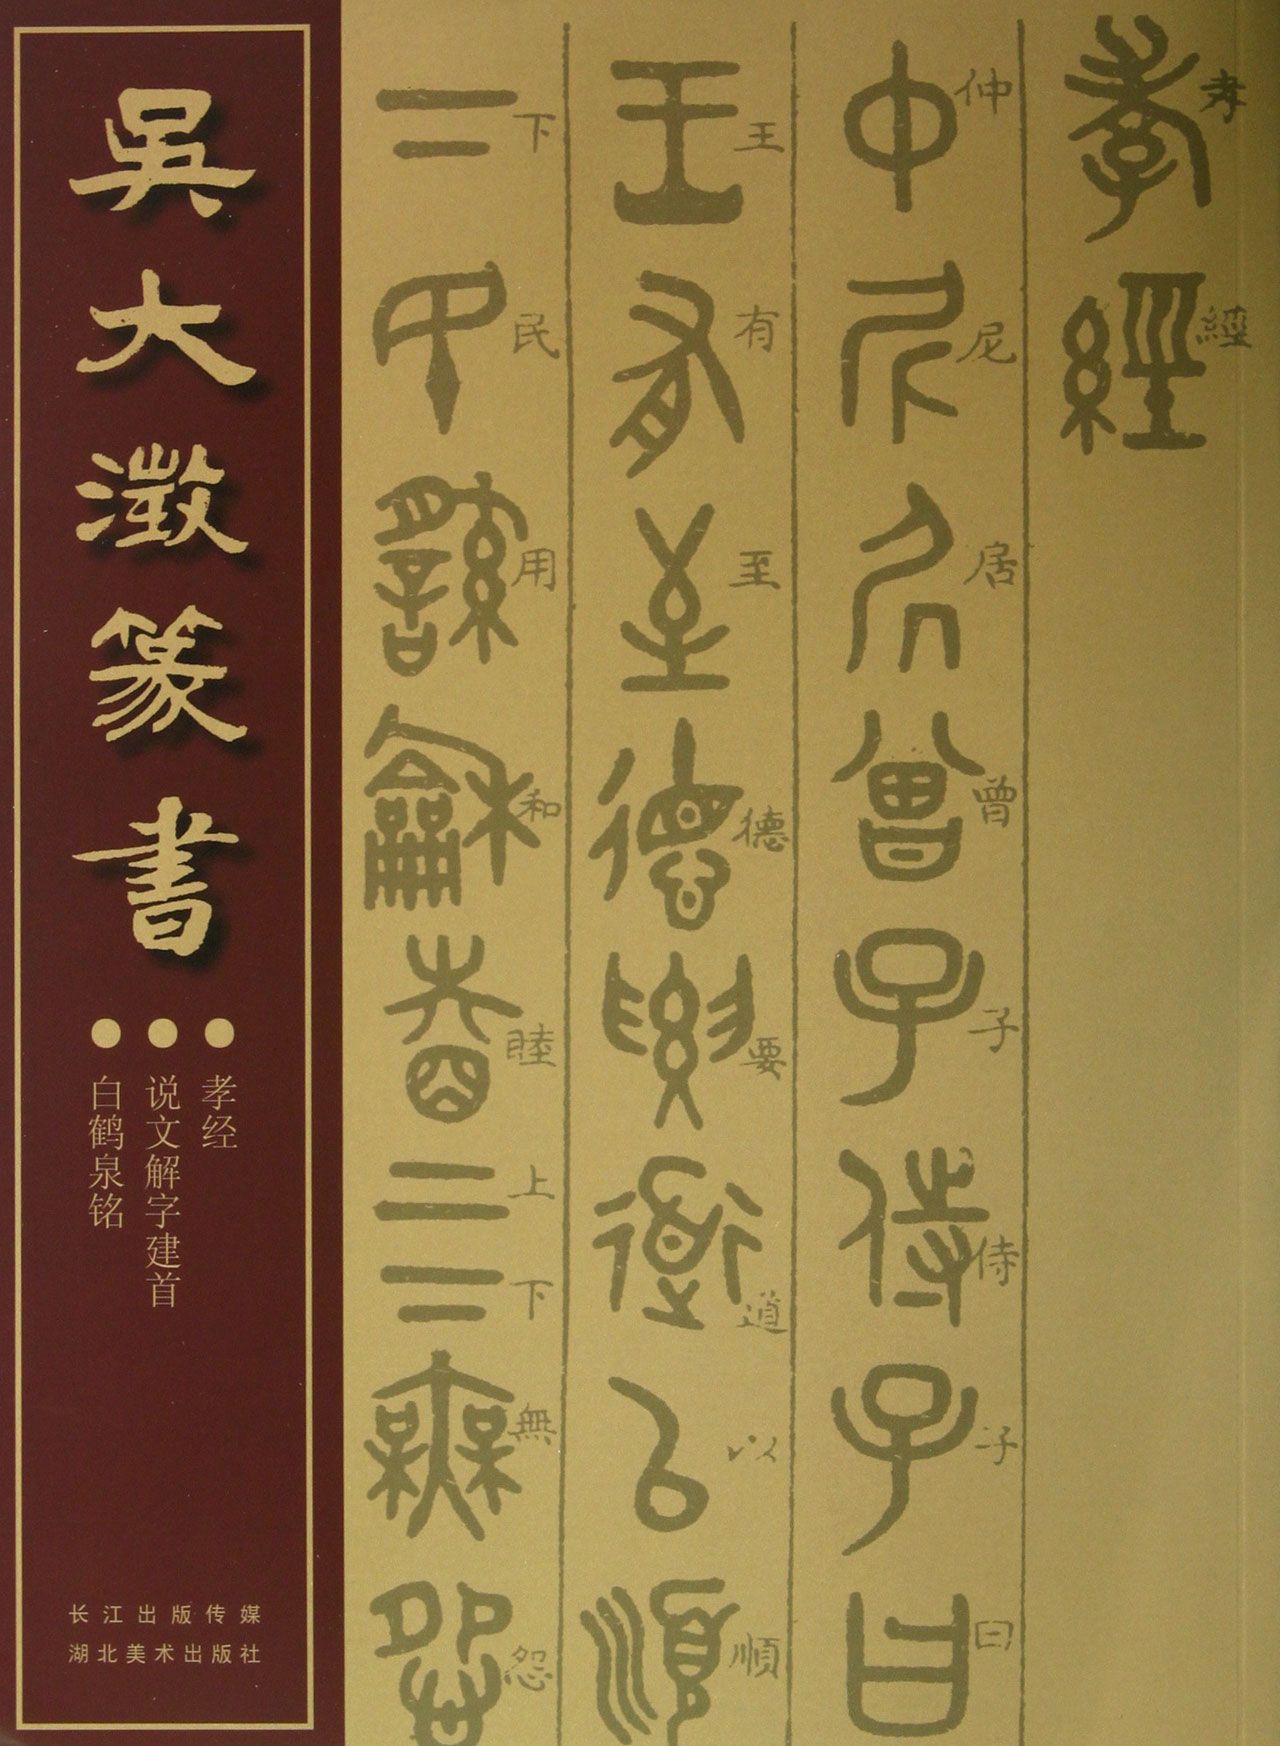 吳大澂篆書
孝经
说文解字建首
白鹤泉铭
长江出版传媒
湖北美术出版社
孝經
仲尼居曾子侍子曰
王有至德要道以順
下民用和睦上下無怨